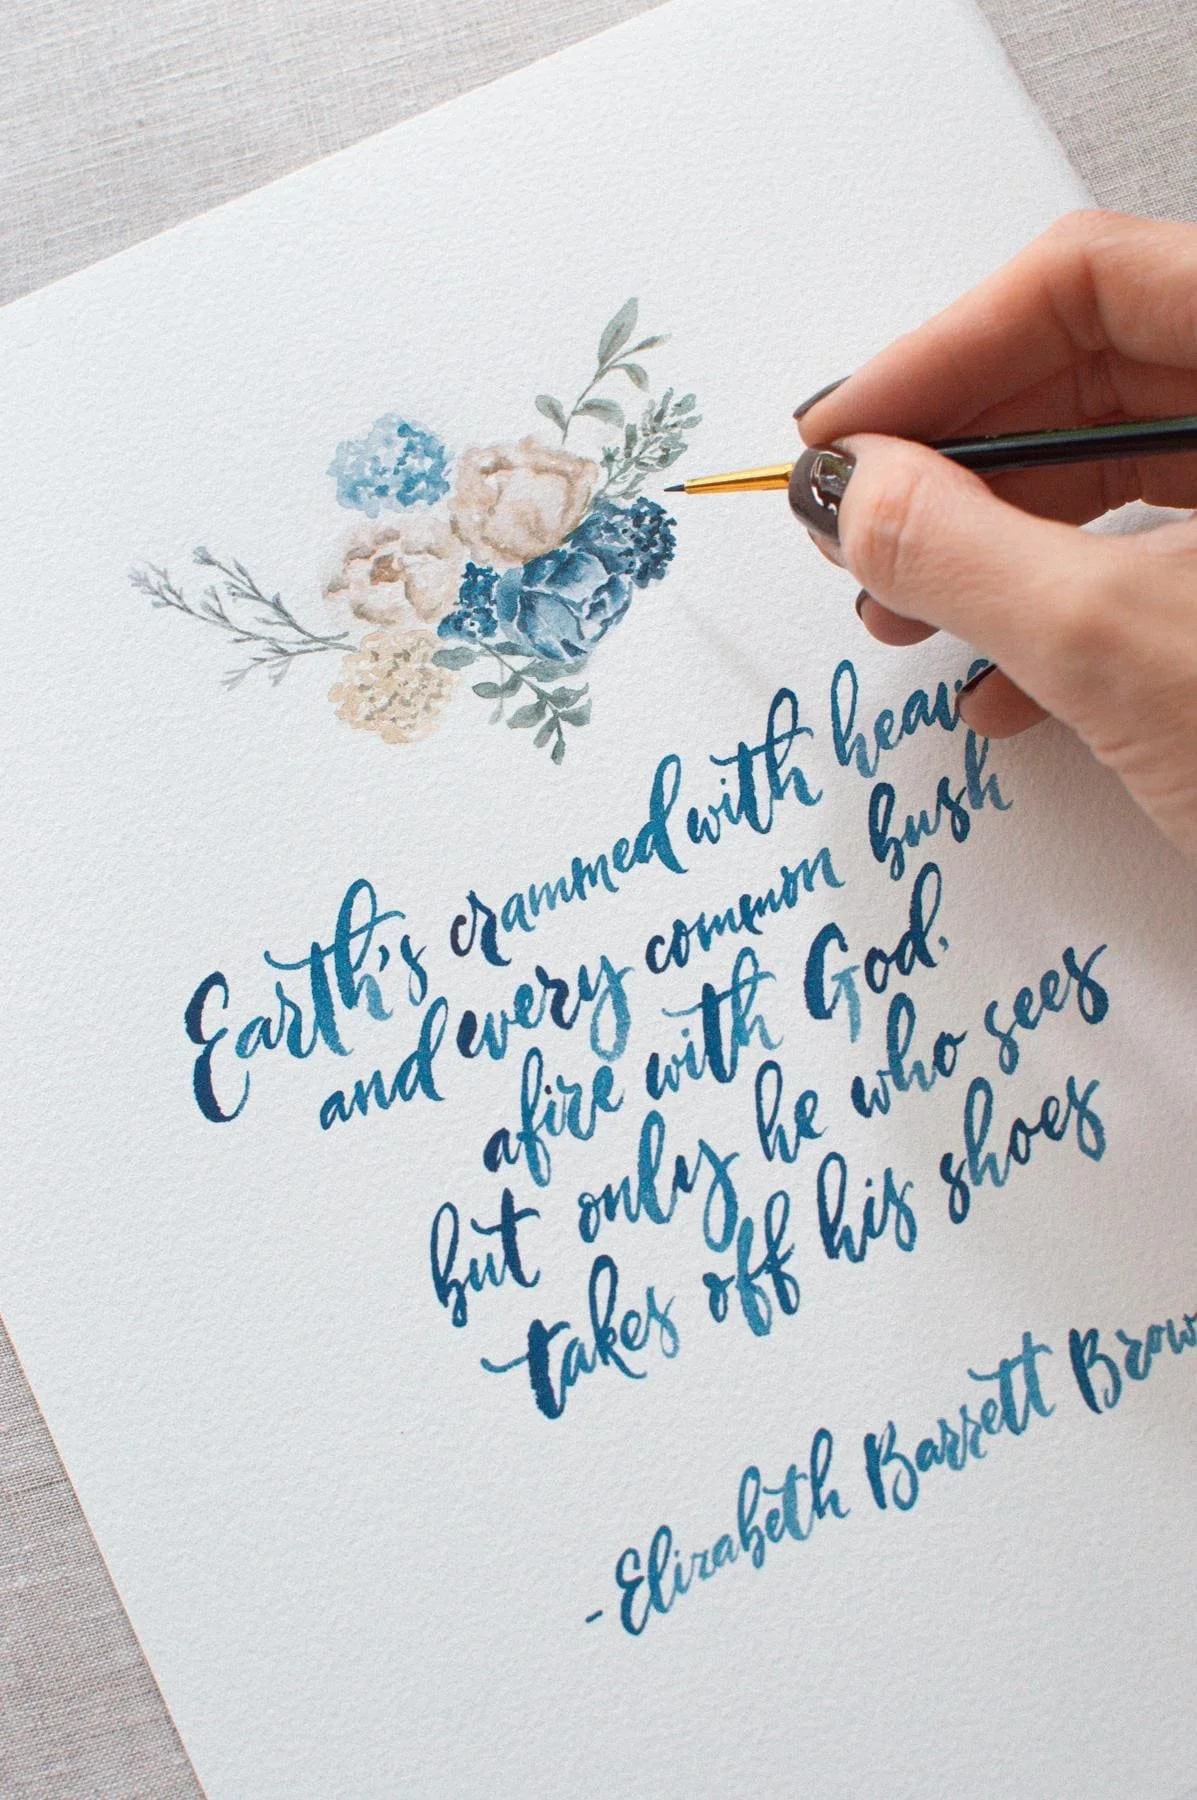 Earth's crammed with heav
and every common bush
afire with God.
but only he who sees
takes off his shoes
-Elizabeth Barrett Brow